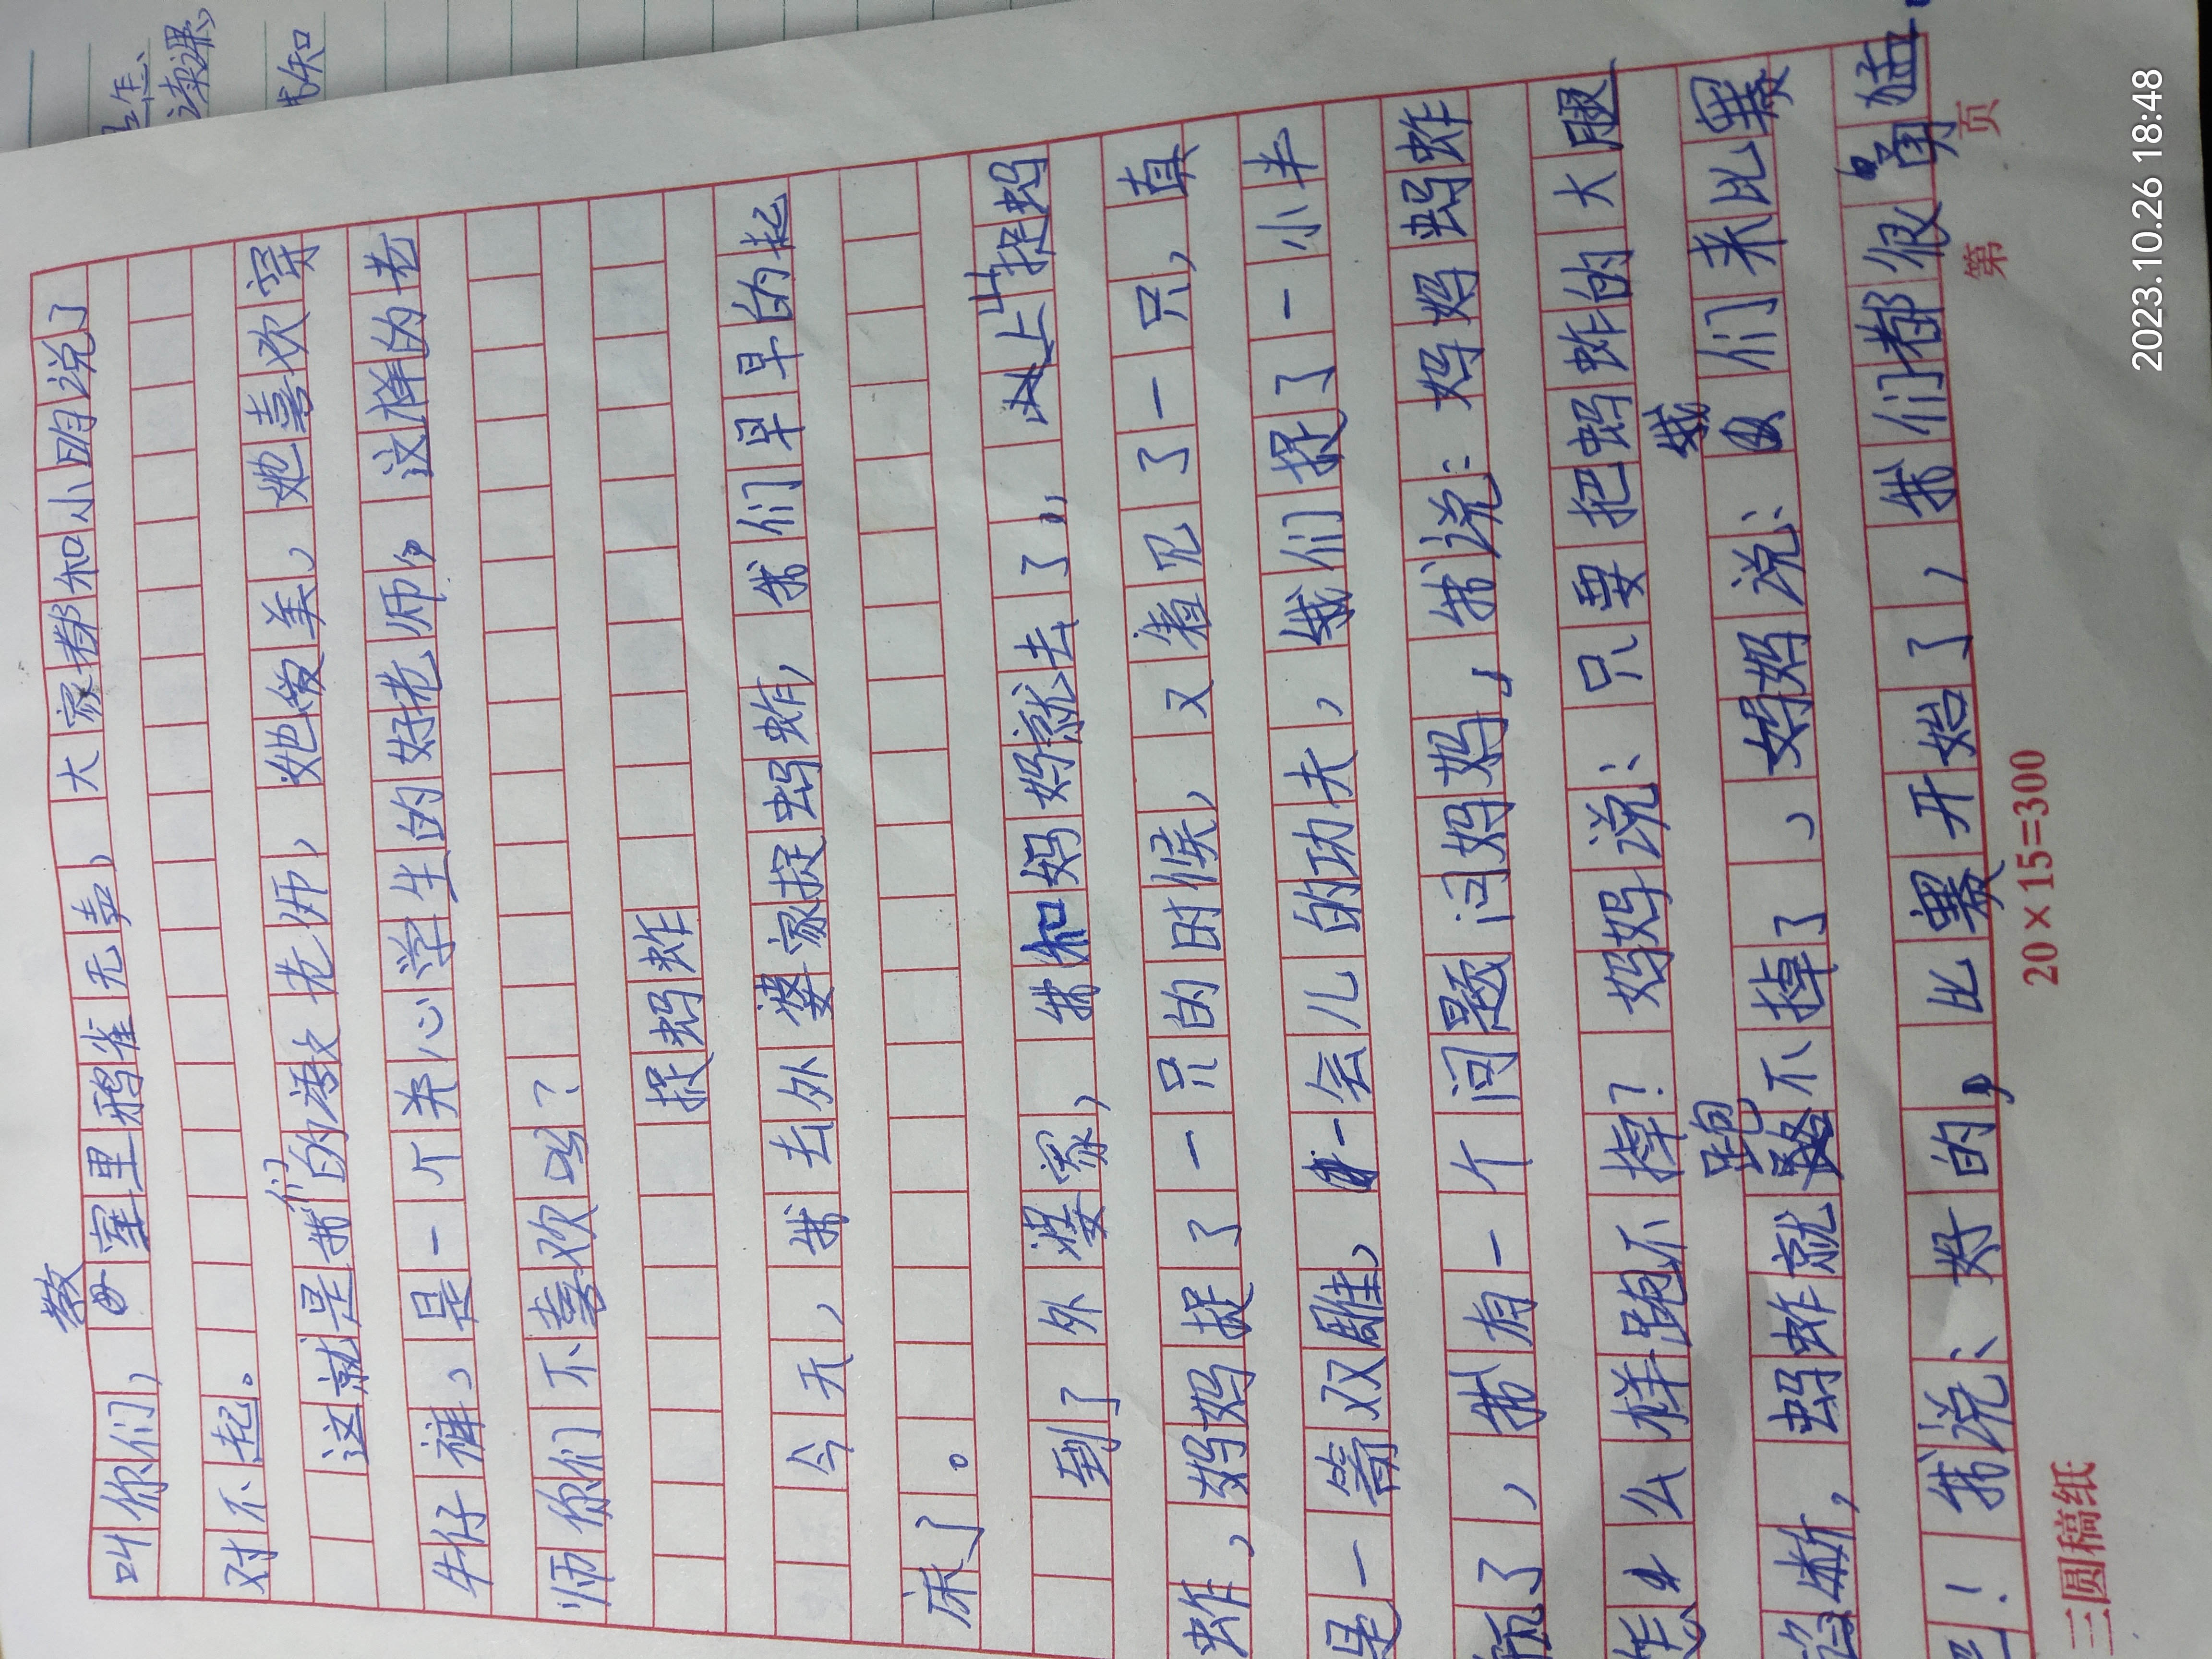 叫你们，教室里鸦雀无声，大家都和小明说了
对不起。
这就是我们的漆老师，她爱美，她喜欢穿
牛仔裤，是一个关心学生的好老师，这样的老
师你们不喜欢吗？
捉蚂蚱
今天，我去外婆家捉蚂蚱，我们早早的起
床了。
到了外婆家，我和妈妈就去了山上捉蚂
蚱，妈妈捉了一只的时候，又看见了一只，真
是一箭双雕，一会儿的功夫，我们捉了一小半
瓶了，我有一个问题问妈妈，我说：妈妈蚂蚱
怎么样跑不掉？妈妈说：只要把蚂蚱的大腿
掰断，蚂蚱就跑不掉了，妈妈说：我们来比赛
吧！我说：好的，比赛开始了，我们都很勇猛
三圆稿纸
20×15=300
第 页
2023.10.26 18:48
读课
我知